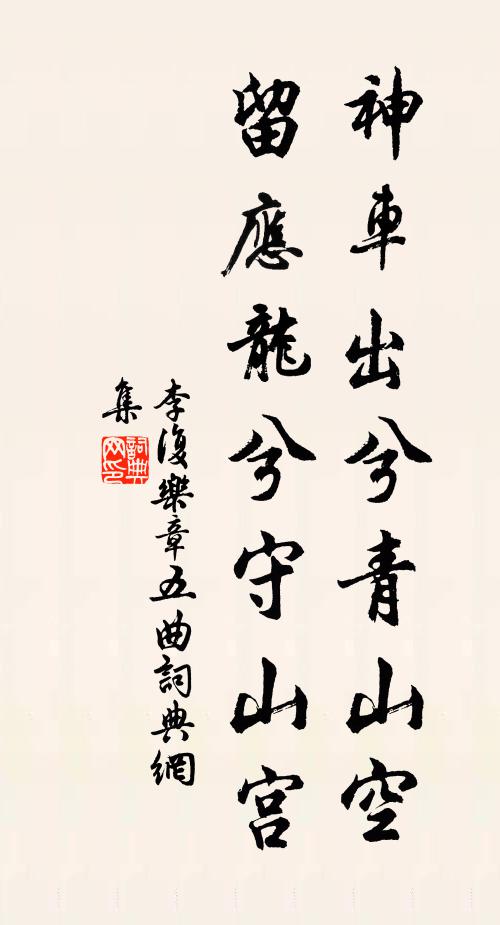 神車出兮青山空
留應龍兮守山宮
李復樂章五曲詞典網
集
詞典
网印